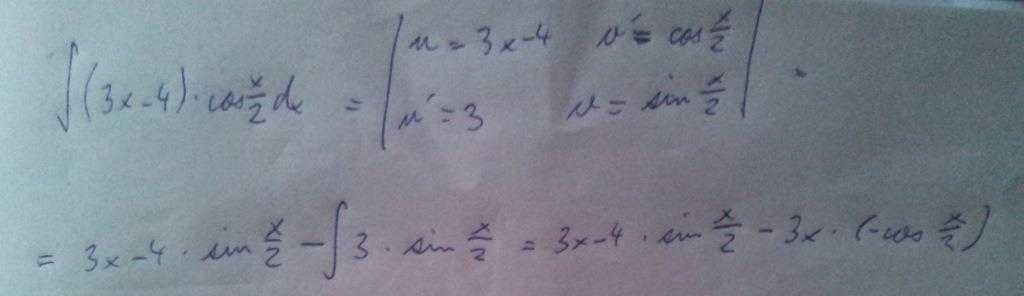 ∫(3x-4)·cos x/2 dx = | u = 3x-4 v' = cos x/2 |
| u' = 3 v = sin x/2 |
= 3x-4 · sin x/2 - ∫3 · sin x/2 = 3x-4 · sin x/2 - 3x · (-cos x/2)